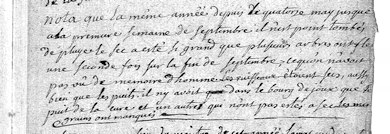 nota que la meme année depuis le quatorze may jusqua
a la premiere semaine de septembre il n'est point tombé
de pluye le sec a esté si grand que plusieurs arbres ont fl
une seconde fois sur la fin de septembre, ce qu'on navait
pas vu de memoire d'homme les ruisseaux etoient secs, aussi
bien que les puits il ny avoit que dans le bourg de joux que le
puit de la cure et un autre qui nont pas esté a sec les
grains ont manqués